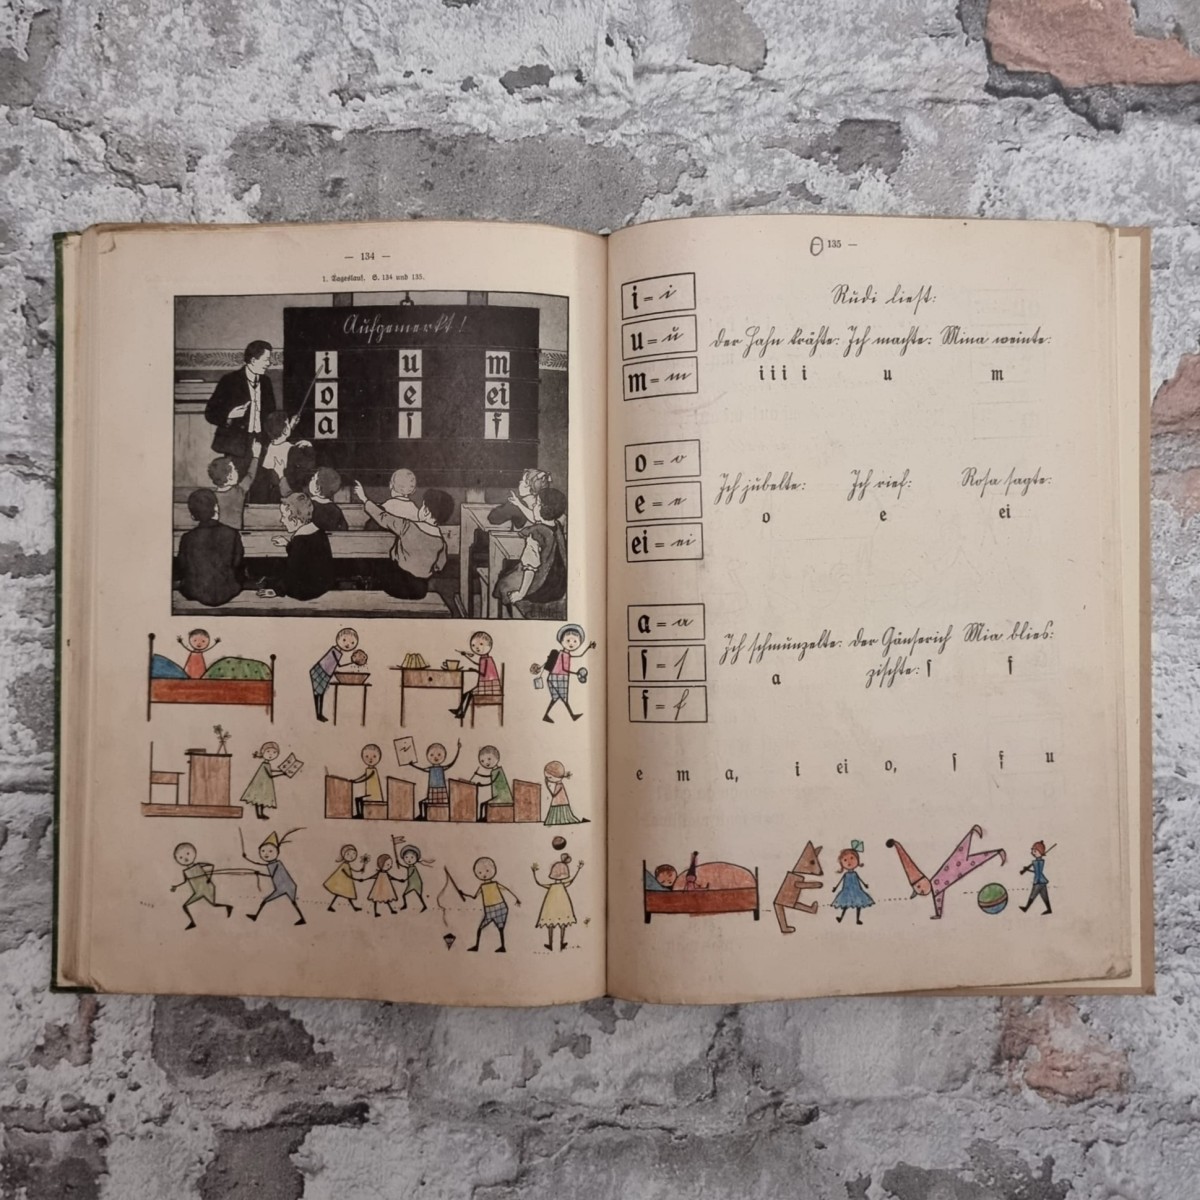 — 134 —
1. Tageslauf. S. 134 und 135.
Aufgemerkt!
i u m
o e ei
a ſ f
— 135 —
i = i
u = u
m = m
Rudi lieſt:
der Hahn krähte: Ich machte: Mina weinte:
i i i i u m
o = o
e = e
ei = ei
Ich jubelte: Ich rief: Roſa ſagte:
o e ei
a = a
ſ = ſ
f = f
Ich ſchmunzelte: der Gänſerich Mia blies:
a ziſchte: ſ f
e m a, i ei o, ſ f u